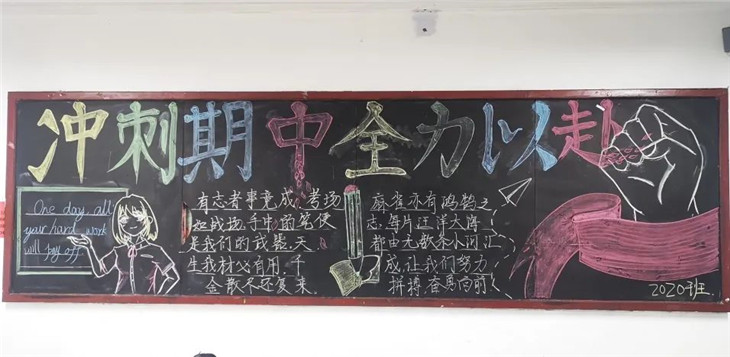 冲刺期中全力以赴
One day all
your hard work
will pay off
有志者事竟成,考场
如战场,手中的笔便
是我们的武器,天
生我材必有用,千
金散尽还复来.
麻雀亦有鸿鹄之
志,每片汪洋大海
都由无数条小河汇
成,让我们努力
拼搏奋勇向前!
2020班.